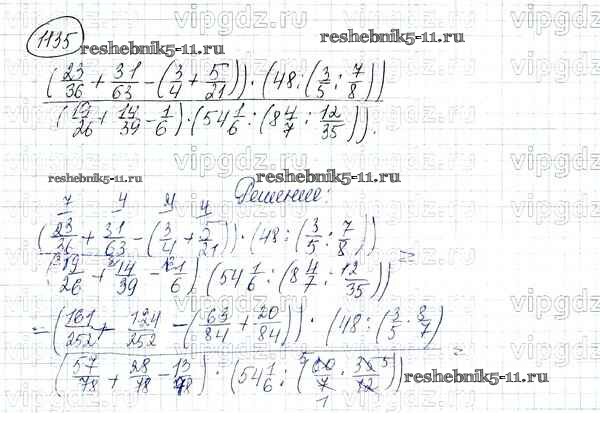 vipgdz.ru
1135
reshebnik5-11.ru
(23/36 + 31/63 - (3/4 + 5/21)) · (48 : (3/5 : 7/8))
(19/26 + 14/39 - 1/6) · (54 1/6 : (8 4/7 : 12/35)).
reshebnik5-11.ru
reshebnik5-11.ru
Решение:
7 4 21 4
(23/36 + 31/63 - (3/4 + 5/21)) · (48 : (3/5 : 7/8)) =
(19/26 + 14/39 - 1/6) (54 1/6 : (8 4/7 : 12/35))
= (161/252 + 124/252 - (63/84 + 20/84)) · (48 : (3/5 · 8/7)
(57/78 + 28/78 - 13/78) · (54 1/6 : (60/7 · 35/12)) =
reshebnik5-11.ru